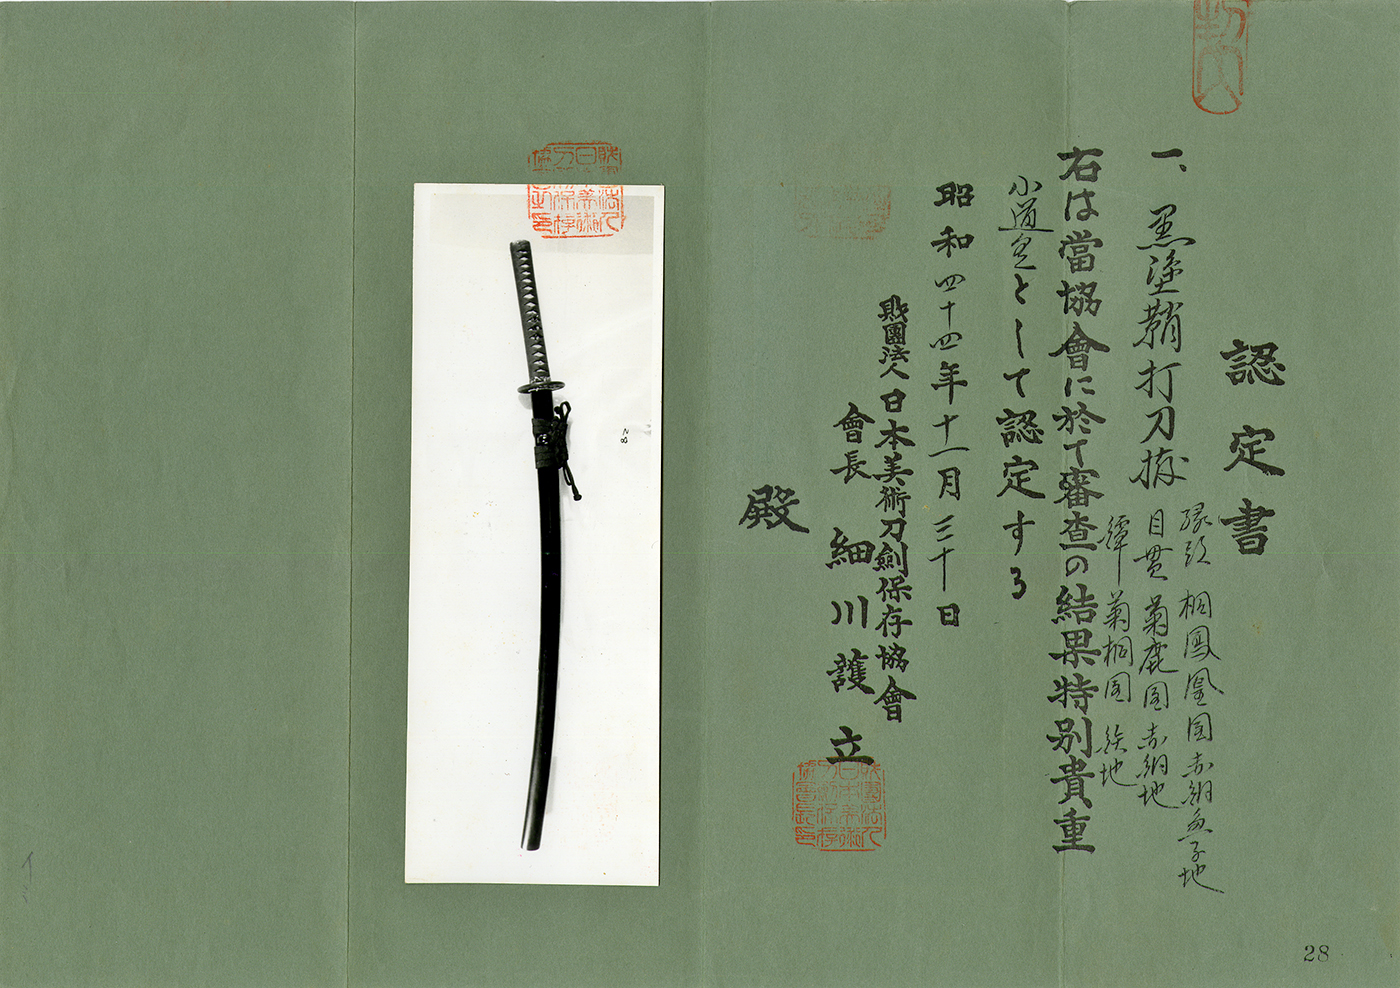 認定書
一、黒塗鞘打刀拵
縁頭 桐鳳凰図赤銅魚子地
目貫 菊鹿図赤銅地
鐔 菊桐図 鉄地
右は當協會に於て審査の結果特別貴重
小道具として認定する
昭和四十四年十一月三十日
財團法人日本美術刀劍保存協會
會長 細川護立
殿
28
28